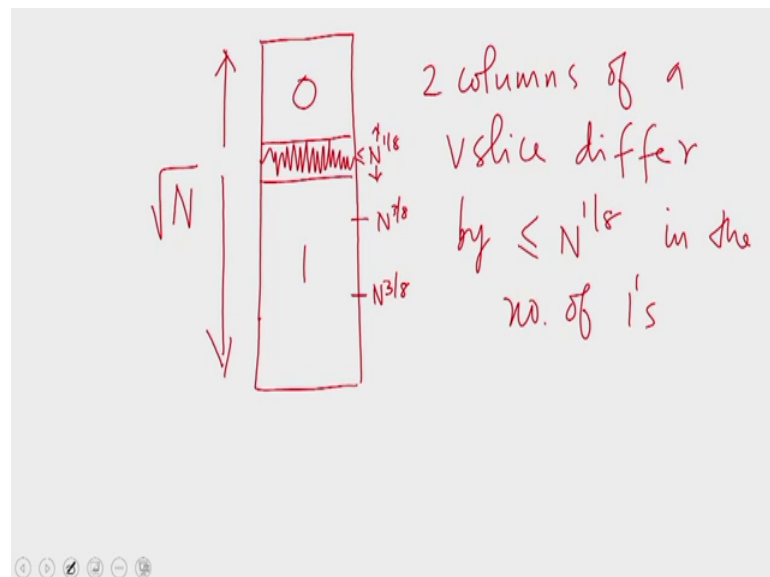 0
≤ N^1/8
√N
N^3/8
1
N^3/8
2 columns of a
vslice differ
by ≤ N^1/8 in the
no. of 1's